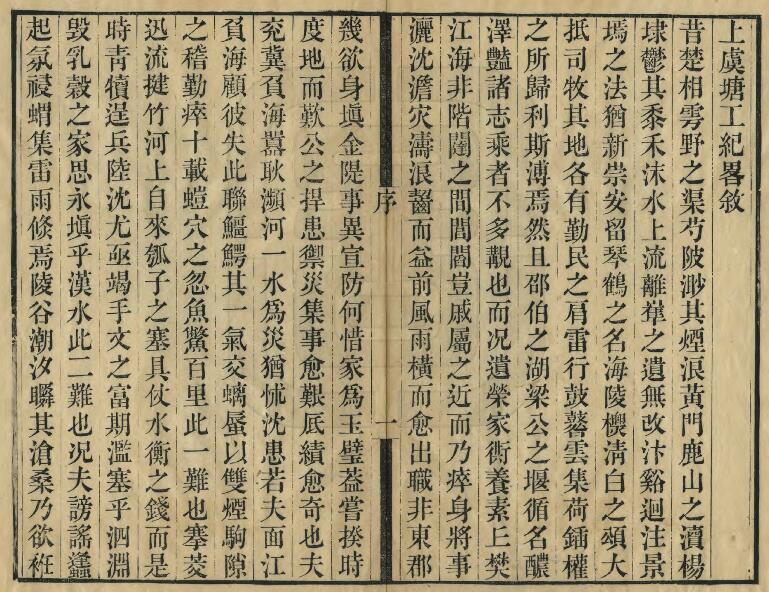 上虞塘工紀畧敘
昔楚相雩野之渠芍陂渺其煙浪黃門鹿山之瀆楊
埭鬱其黍禾沬水上流離崋之遺無改汴谿迴注景
焉之法猶新崇安留琴鶴之名海陵櫻淸白之頌大
抵司牧其地各有勤民之肩雷行鼓鼛雲集荷鍤權
之所歸利斯溥焉然且邵伯之湖梁公之堰循名醲
澤豔諸志乘者不多覯也而况遺榮家衖養素上樊
江海非階闥之間閭閻豈戚屬之近而乃瘁身將事
灑沈澹灾濤浪齧而益前風雨橫而愈出職非東郡
序 一
幾欲身塡金隄事異宣防何惜家爲玉璧葢嘗揆時
度地而歎公之捍患禦災集事愈艱厎績愈奇也夫
兖冀負海囂耿瀕河一水爲災猶怵沈患若夫面江
負海顧彼失此聯鱷鰐其一氣交螭蜃以雙煙駒隙
之稽勤瘁十載螘穴之忽魚鱉百里此一難也搴茭
迅流揵竹河上自來瓠子之塞具仗水衡之錢而是
時靑犢逞兵陸沈尤亟竭手文之富期濫塞乎泗淵
毀乳穀之家思永塡乎漢水此二難也况夫謗謠蠭
起氛祲蝟集雷雨倏焉陵谷潮汐瞬其滄桑乃欲衽